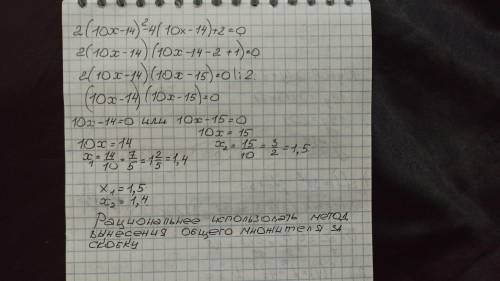 2(10x-14)²-4(10x-14)+2=0
2(10x-14)(10x-14-2+1)=0
2(10x-14)(10x-15)=0 |:2
(10x-14)(10x-15)=0
10x-14=0 или 10x-15=0
10x=14 10x=15
x₁=14/10=7/5=1 2/5=1,4 x₂=15/10=3/2=1,5
x₁=1,5
x₂=1,4
Рациональнее использовать метод
вынесения общего множителя за
скобку